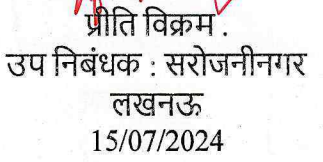 प्रीति विक्रम .
उप निबंधक : सरोजनीनगर
लखनऊ
15/07/2024